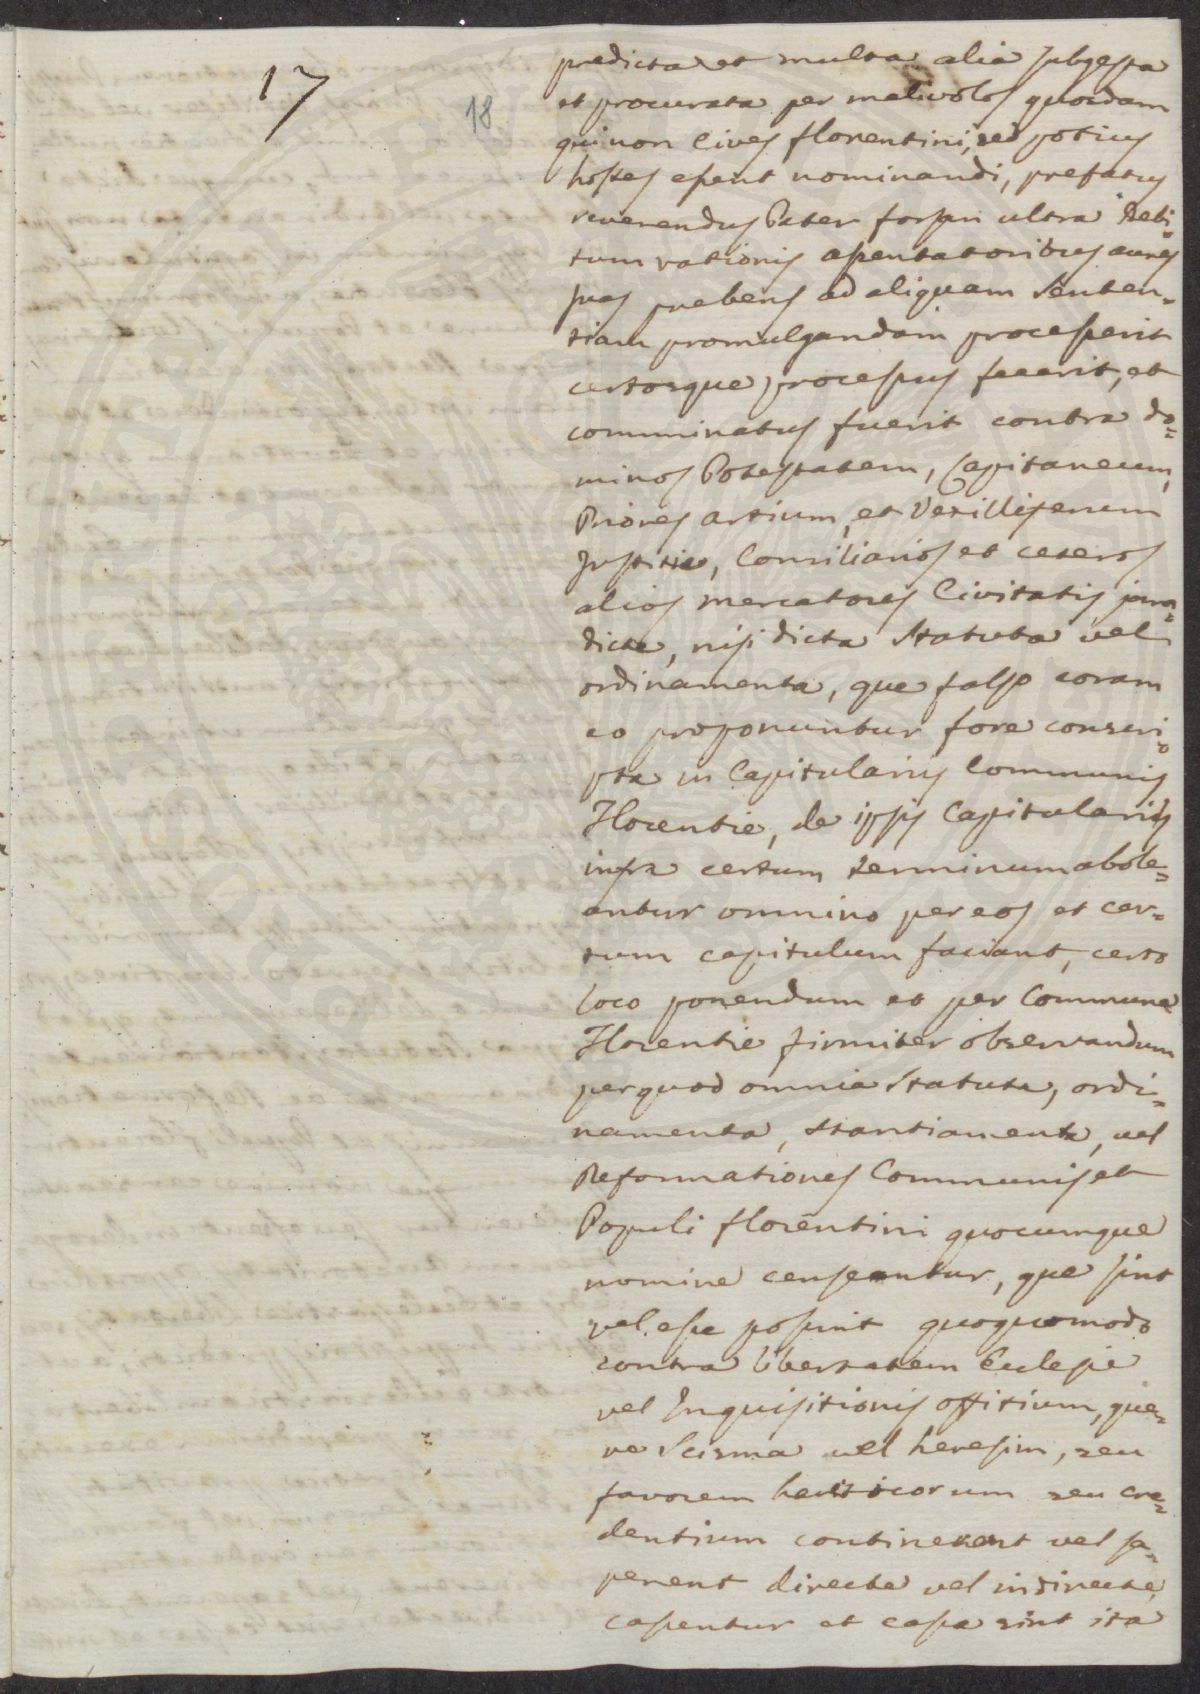 17
18
predicta et multa alia subgesta
et procurata per malivolos quosdam
qui non Cives florentini, sed potius
hostes essent nominandi, prefatus
reverendus Pater forsan ultra debi=
tum rationis assentatoribus aures
suas prebens ad aliquam senten=
tiam promulgandam processerit
certosque processus fecerit, et
comminatus fuerit contra do=
minos Potestatem, Capitaneum,
Priores artium, et Vexilliferum
Justitie, Consiliarios et ceteros
alios mercatores Civitatis
dicte, nisi dicta Statuta vel
ordinamenta, que falso coram
eo proponuntur fore conscri=
pta in Capitulariis Communis
Florentie, de ipsis Capitulariis
infra certum terminum abole=
antur omnino per eos et cer=
tum capitulum faciant, certo
loco ponendum et per Commune
Florentie firmiter observandum
per quod omnia Statuta, ordi=
namenta, stantiamenta, vel
Reformationes Communis et
Populi florentini quocumque
nomine censeantur, que sint
vel esse possint quoquomodo
contra libertatem Ecclesie
vel Inquisitionis offitium, que=
ve Scisma vel heresim, seu
favorem hereticorum seu cre=
dentium continerent vel sa=
perent directe vel indirecte,
cassentur et cassa sint ita